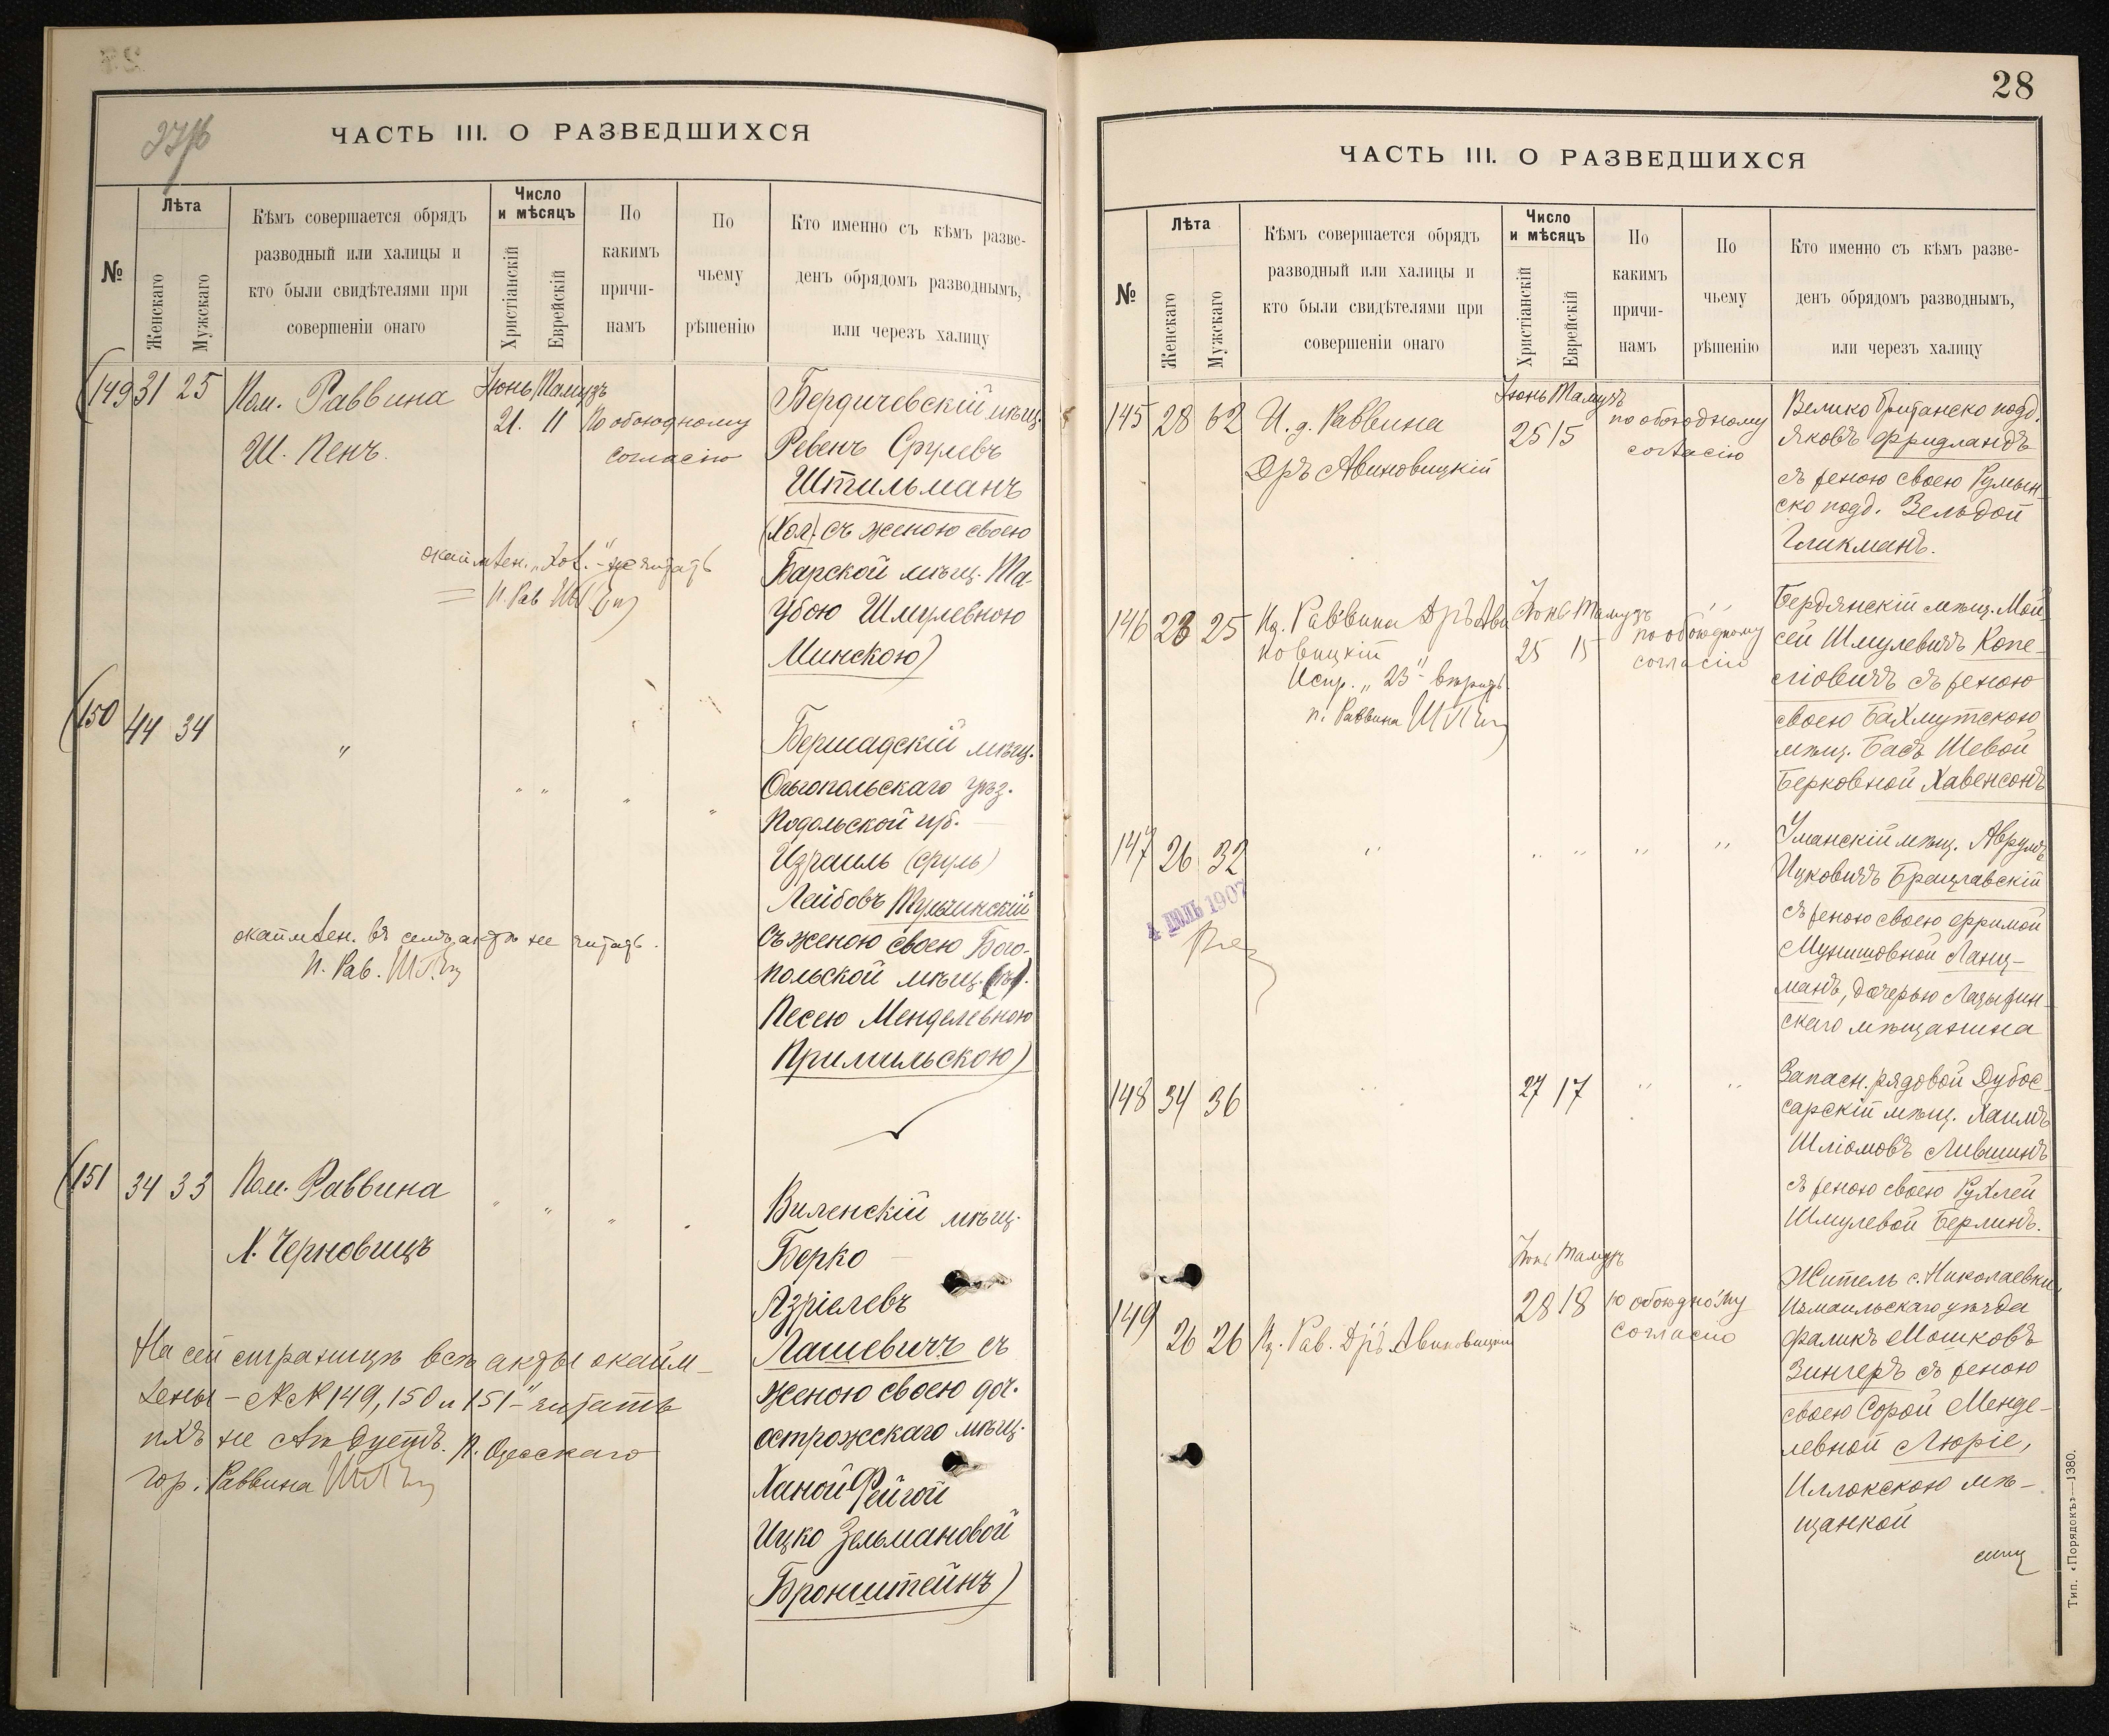 27об
ЧАСТЬ III. О РАЗВЕДШИХСЯ
№
Лѣта
Женскаго
Мужскаго
Кѣмъ совершается обрядъ
разводный или халицы и
кто были свидѣтелями при
совершеніи онаго
Число
и мѣсяцъ
Христіанскій
Еврейскій
По
какимъ
причи-
намъ
По
чьему
рѣшенію
Кто именно съ кѣмъ разве-
денъ обрядомъ разводнымъ,
или черезъ халицу
(149 31 25
Пом. Раввина
Ш. Пенъ.
Іюнь Тамузъ
21. 11
По обоюдному
согласію
Бердичевскій мѣщ.
Ревенъ Срулевъ
Штильманъ
(Хол). съ женою своею
Барской мѣщ. Та-
убою Шмулевною
Минскою)
окаймлен. „Хол." не читать
П. Рав. ШПенъ
(150 44 34
"
" " " "
Бершадскій мѣщ.
Ольгопольскаго уѣз.
Подольской губ.
Израиль (Сруль)
Лейбовъ Тульчинскій
съ женою своею Бого-
польской мѣщ.
Песею Менделевною
Примильскою)
окаймлен. въ семъ актѣ не читать.
П. Рав. ШПенъ
(151 34 33
Пом. Раввина
Х. Черновицъ
" " " "
Виленскій мѣщ.
Берко
Азріелевъ
Лашевичъ съ
женою своею доч.
острожскаго мѣщ.
Ханой Фейгой
Ицко Зельмановой
Бронштейнъ)
На сей страницѣ всѣ акты окайм-
лены – №№ 149, 150 и 151 – читать
ихъ не слѣдуетъ. П. Одесскаго
гор. Раввина ШПенъ
28
ЧАСТЬ III. О РАЗВЕДШИХСЯ
№
Лѣта
Женскаго
Мужскаго
Кѣмъ совершается обрядъ
разводный или халицы и
кто были свидѣтелями при
совершеніи онаго
Число
и мѣсяцъ
Христіанскій
Еврейскій
По
какимъ
причи-
намъ
По
чьему
рѣшенію
Кто именно съ кѣмъ разве-
денъ обрядомъ разводнымъ,
или черезъ халицу
145 28 62
И. д. Раввина
Дръ Авиновицкій
Іюнь Тамузъ
25 15
по обоюдному
согласію
Велико Британско подд.
Яковъ Фридландъ
съ женою своею Румын-
ско подд. Зельдой
Гликманъ.
146 23 25
Ид. Раввина Дръ Ави
новицкій
Испр. „23" вѣрить
п. Раввина ШПенъ
Іюнь Тамузъ
25 15
по обоюдному
согласію
"
Бердянскій мѣщ. Мой-
сей Шмулевичъ Копе-
ліовичъ съ женою
своею Бахмутскою
мѣщ. Бася Шевой
Берковной Хавенсонъ
147 26 32
" " " " "
4 ІЮЛЬ 1907
Уманскій мѣщ. Аврумъ
Ицковичъ Брацлавскій
съ женою своею Фримой
Мунишовной Ланц-
манъ, дочерью Ладыжин-
скаго мѣщанина
148 34 36
"
27 17
" "
Запасн. рядовой Дубос-
сарскій мѣщ. Хаимъ
Шліомовъ Лившицъ
съ женою своею Рухлей
Шмулевой Берлинъ.
149 26 26
Ид. Рав. Дръ Авиновицкій
Іюнь Тамузъ
28 18
по обоюдному
согласію
Житель с. Николаевки
Измаильскаго уѣзда
Фаликъ Мошковъ
Зингеръ съ женою
своею Сорой Менде-
левной Люріе,
Иллокскою мѣ-
щанкой
Тип. «Порядокъ»—1380.